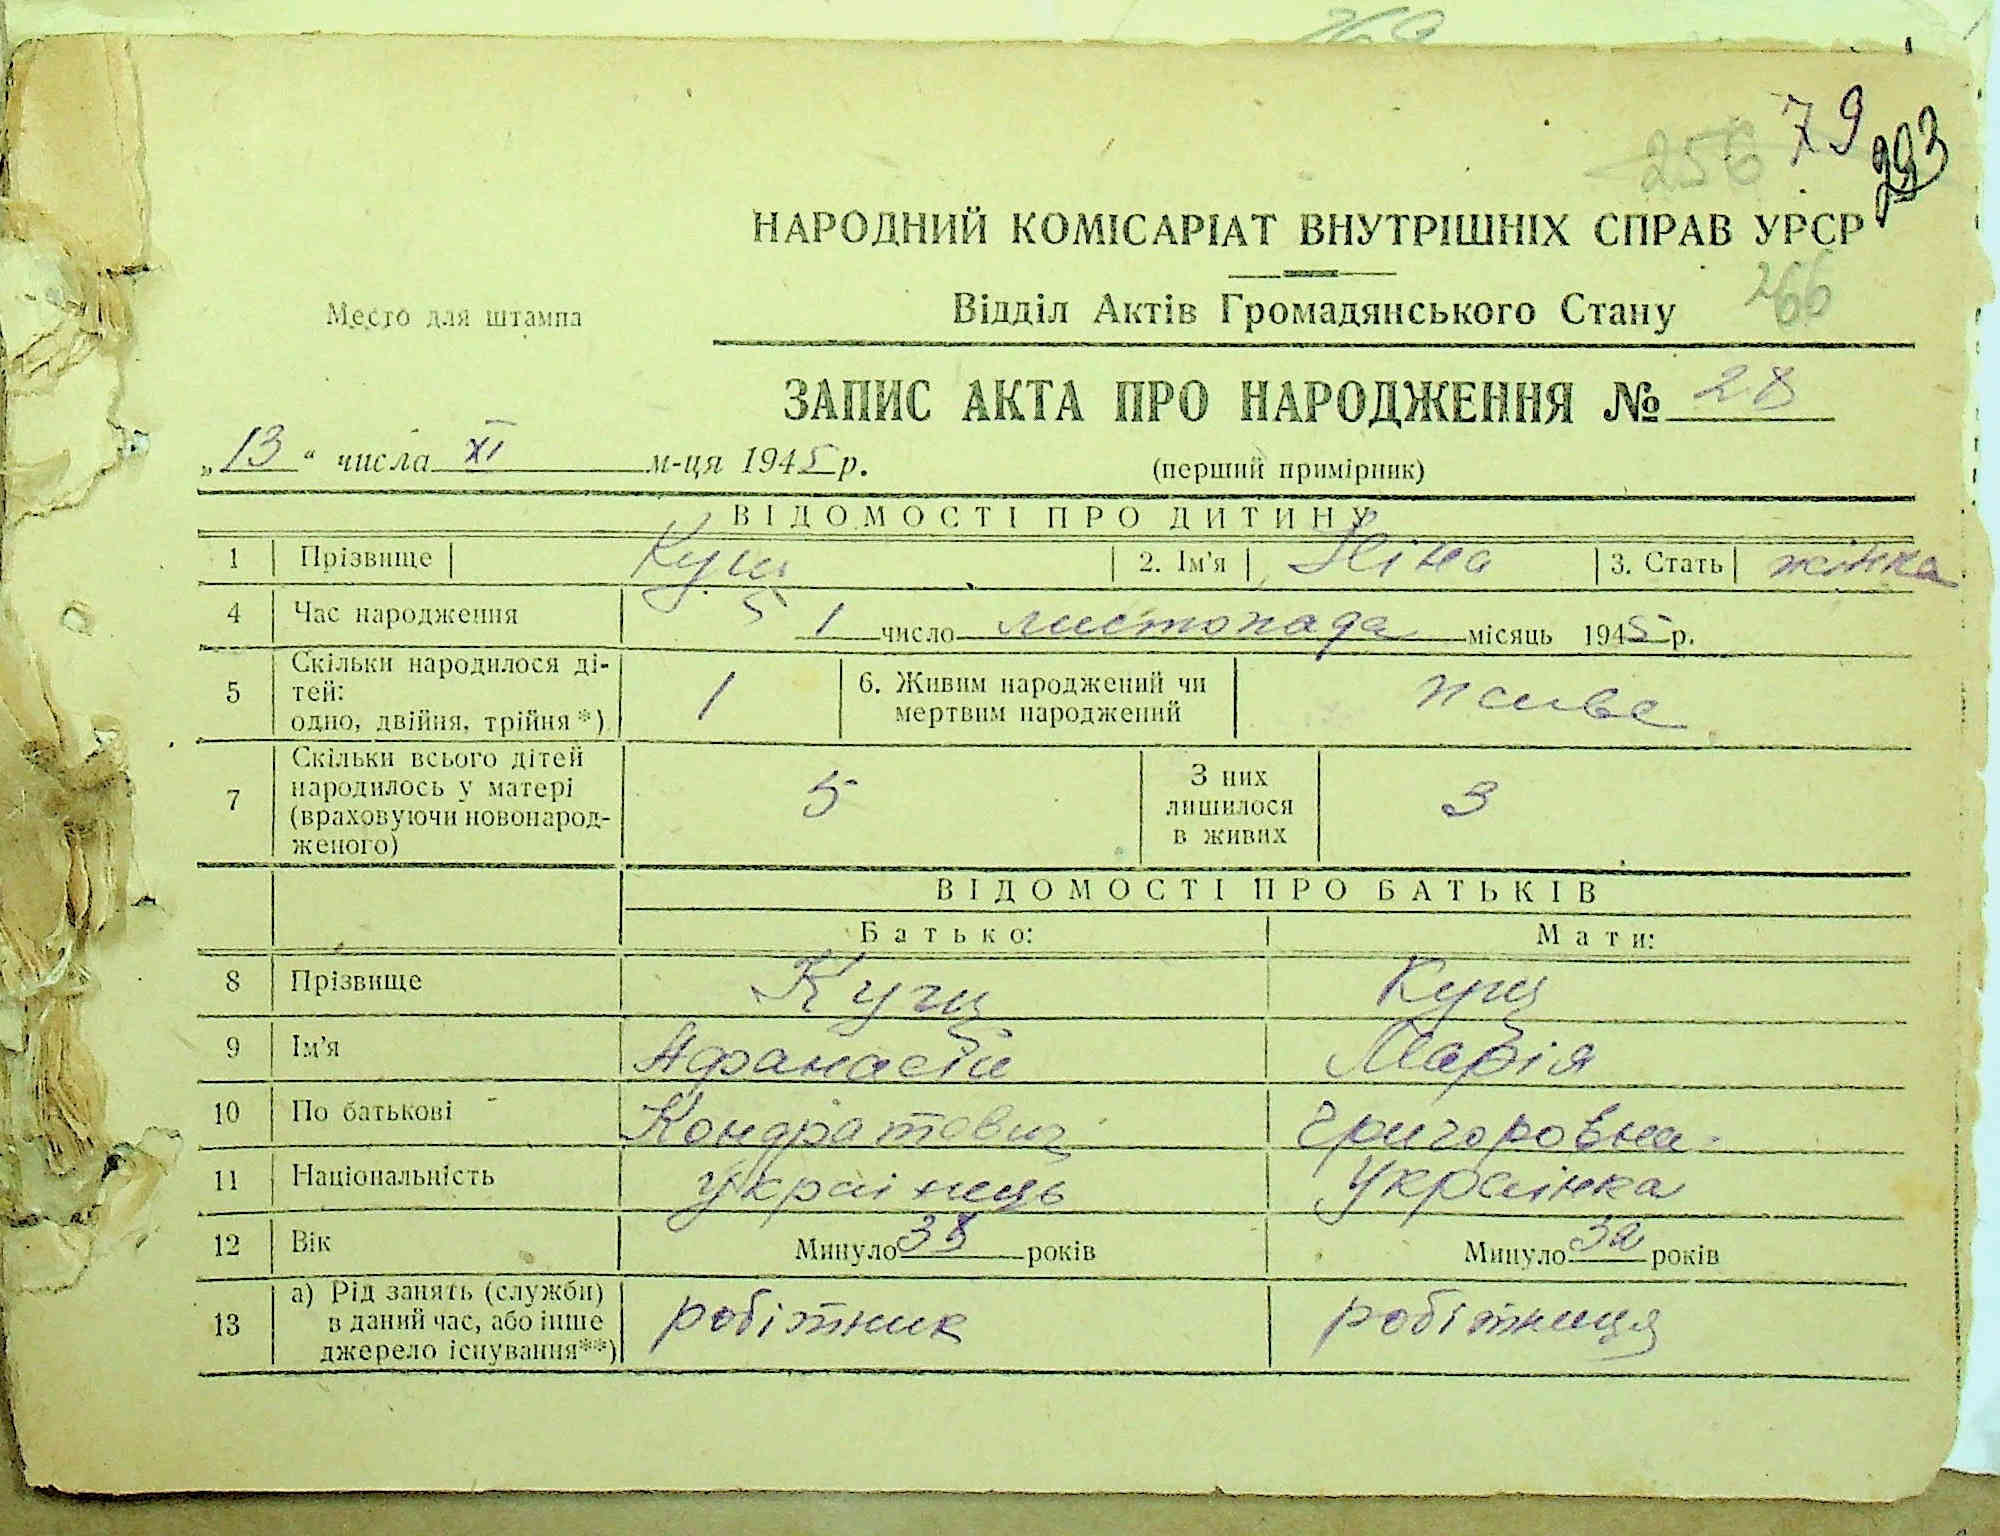 79
256
293
НАРОДНИЙ КОМІСАРІАТ ВНУТРІШНІХ СПРАВ УРСР
266
Место для штампа
Відділ Актів Громадянського Стану
ЗАПИС АКТА ПРО НАРОДЖЕННЯ № 28
„13“ числа XI м-ця 1945 р.
(перший примірник)
ВІДОМОСТІ ПРО ДИТИНУ
1 Прізвище Кущ 2. Ім'я Ніна 3. Стать жінка
4 Час народження 1 число листопада місяць 1945 р.
5 Скільки народилося ді-
тей:
одно, двійня, трійня*)
1
6. Живим народжений чи
мертвим народжений
живе
7 Скільки всього дітей
народилось у матері
(враховуючи новонарод-
женого)
5
З них
лишилося
в живих
3
ВІДОМОСТІ ПРО БАТЬКІВ
Батько: Мати:
8 Прізвище Кущ Кущ
9 Ім'я Афанасій Марія
10 По батькові Кондратович Григоровна
11 Національність українець Українка
12 Вік Минуло 38 років Минуло років
13 а) Рід занять (служби)
в даний час, або інше
джерело існування**)
робітник робітниця